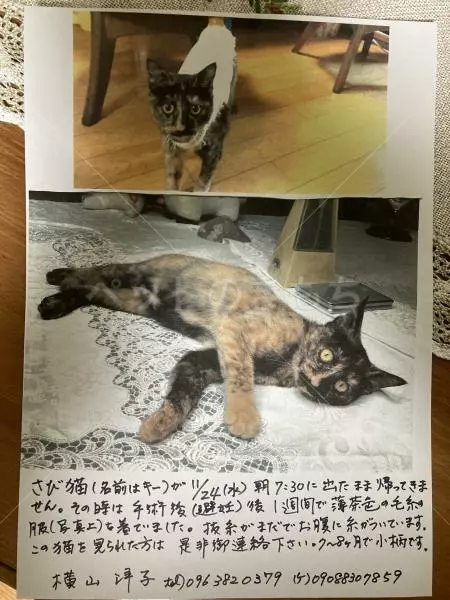 さび猫(名前はキー)が 11/24(水) 朝 7:30に出たまま帰ってきま
せん。その時は手術後(避妊)後1週間で薄茶色の毛糸の
服(写真上)を着ていました。抜糸がまだでお腹に糸がついています。
この猫を見られた方は 是非御連絡下さい。7〜8ヶ月で小柄です。
横山 洋子 tel)0963820379 け)09088307859